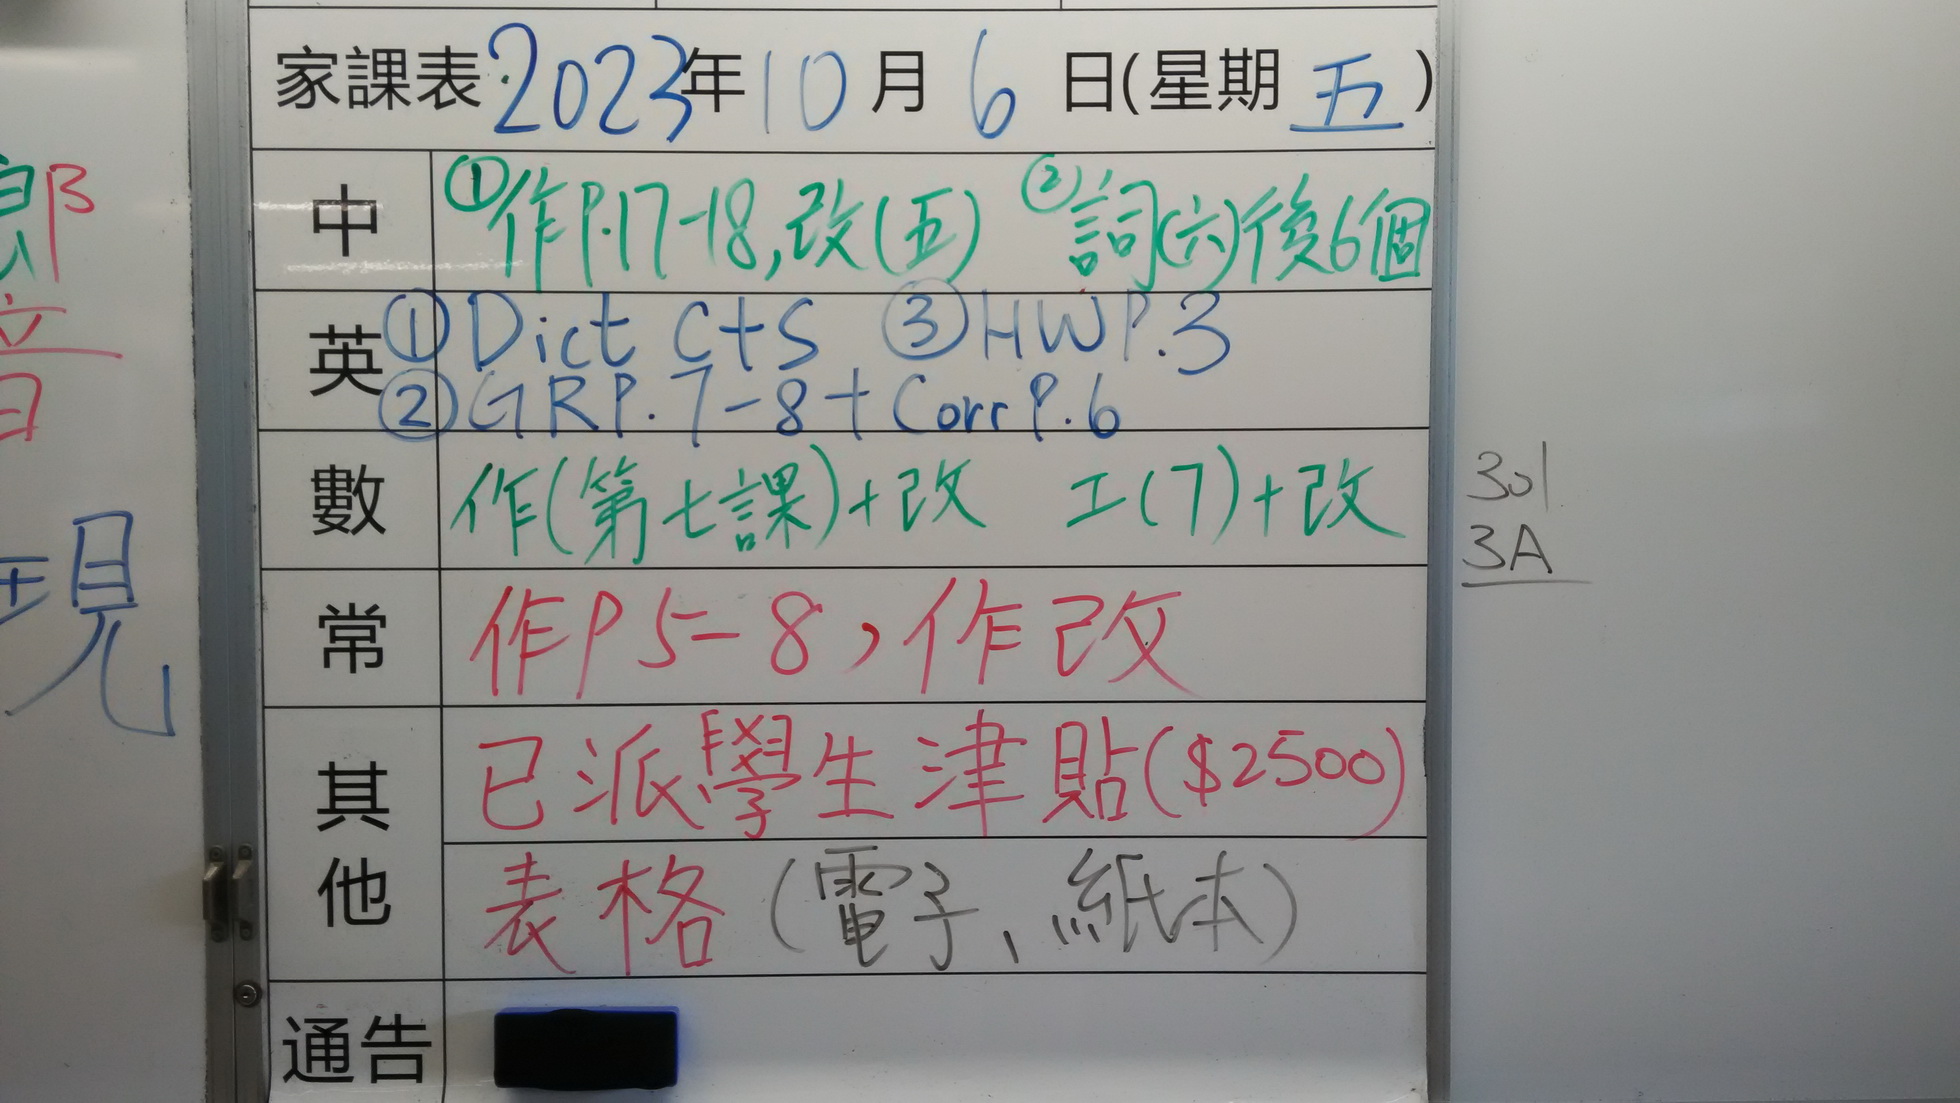 家課表 2023年 10 月 6 日(星期 五 )
中 ①作P.17-18,改(五) ②詞(六)後6個
英 ①Dict C+S ③HWP.3
②GRP.7-8+Corr P.6
數 作(第七課)+改 工(7)+改
常 作P5-8,作改
其他 已派學生津貼($2500)
表格(電子、紙本)
通告
郎
音
現
301
3A